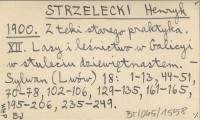 STRZELECKI Henryk
1900. Z teki starego praktyka.
XII. Lasy i leśnictwo w Galicyi
w stuleciu dziewiętnastem.
Sylwan (Lwów) 18: 1-13, 44-51,
70-78, 102-106, 129-135, 161-165,
195-206, 235-249.
BJ